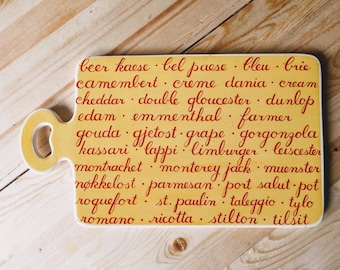 beer kaese · bel paese · bleu · brie
camembert · creme dania · cream
cheddar · double gloucester · dunlop
edam · emmenthal · farmer
gouda · gjetost · grape · gorgonzola
hassari · lappi · limburger · leicester
montrachet · monterey jack · muenster
nøkkelost · parmesan · port salut · pot
roquefort · st. paulin · taleggio · tylo
romano · ricotta · stilton · tilsit